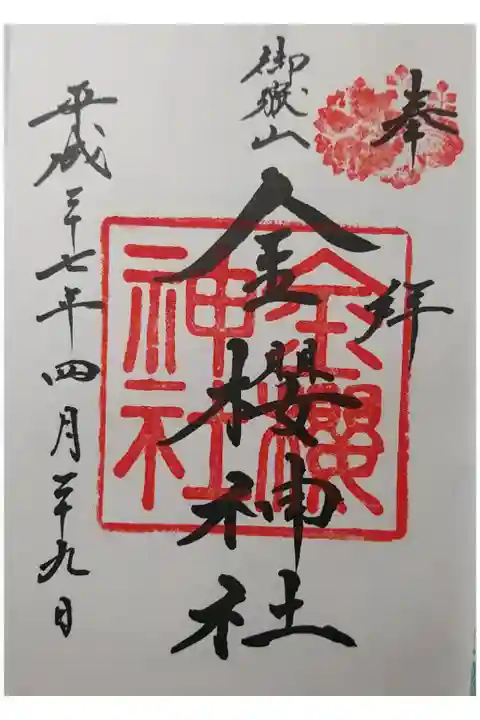 奉拝
御嶽山
金櫻神社
金櫻神社
平成二十七年四月二十九日